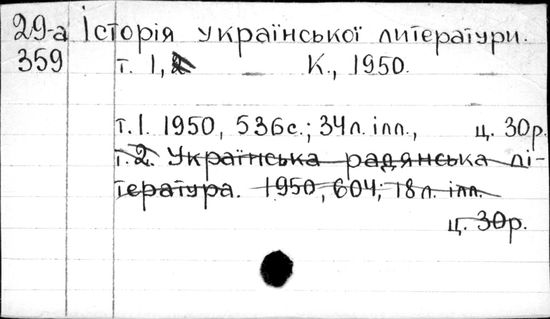 29-а Історія української литератури.
359 т. 1, 2 К., 1950.
т. 1. 1950, 536с.; 34л. ілл., ц. 30р.
т. 2. Українська радянська лі-
тература. 1950, 604, 18л. ілл.
ц. 30р.